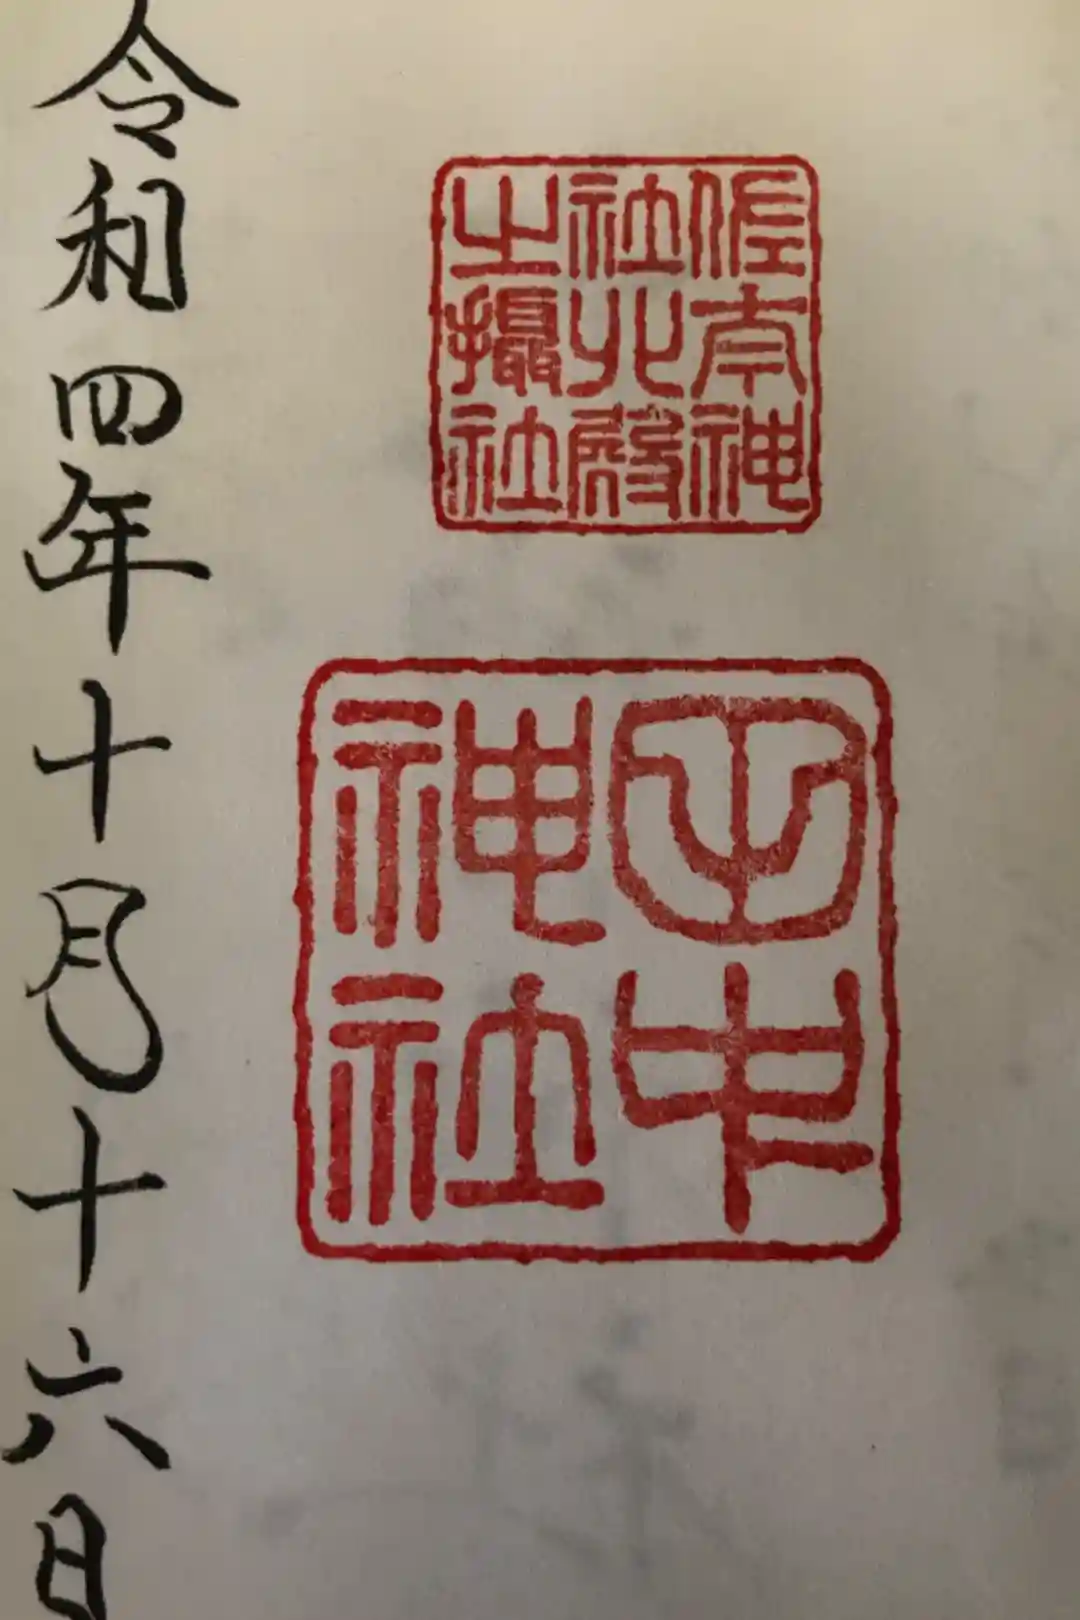 佐太神
社北殿
之攝社
田中
神社
令和四年十月十六日